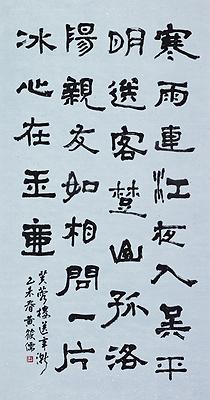 寒雨連江夜入吳平
明送客楚山孤洛
陽親友如相問一片
冰心在玉壺
芙蓉樓送辛漸
乙未春黃筱儒